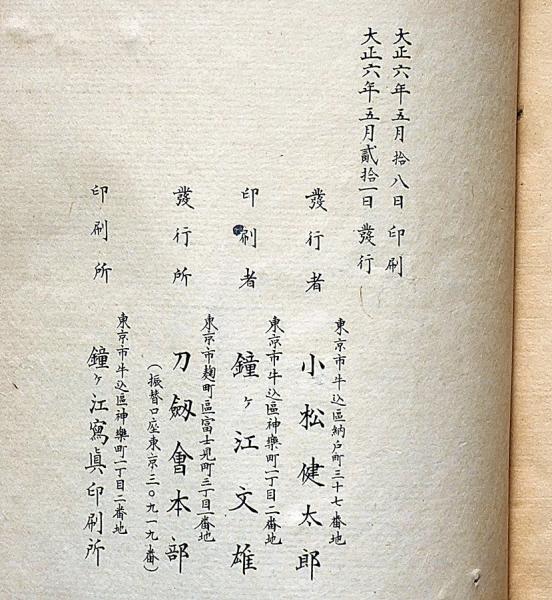 大正六年五月拾八日印刷
大正六年五月貳拾一日發行
發行者
東京市牛込區納戸町三十七番地
小松健太郎
印刷者
東京市牛込區神樂町一丁目二番地
鐘ヶ江文雄
發行所
東京市麹町區富士見町三丁目一番地
刀劔會本部
(振替口座東京三〇九一九番)
印刷所
東京市牛込區神樂町一丁目二番地
鐘ヶ江寫眞印刷所